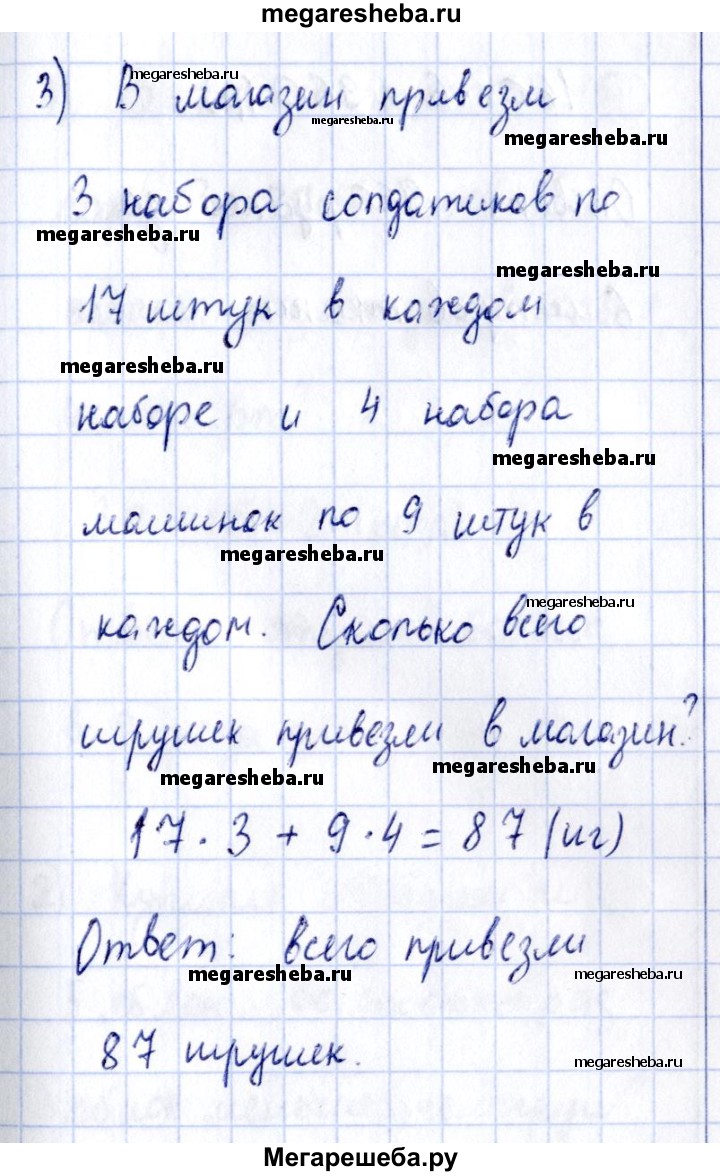 megaresheba.ru
3) В магазин привезли
megaresheba.ru
megaresheba.ru
megaresheba.ru
3 набора солдатиков по
megaresheba.ru
megaresheba.ru
17 штук в каждом
megaresheba.ru
наборе и 4 набора
megaresheba.ru
машинок по 9 штук в
megaresheba.ru
megaresheba.ru
каждом. Сколько всего
игрушек привезли в магазин?
megaresheba.ru
megaresheba.ru
17 · 3 + 9 · 4 = 87 (иг)
Ответ: всего привезли
megaresheba.ru
megaresheba.ru
87 игрушек.
megaresheba.ru
Мегарешеба.ру